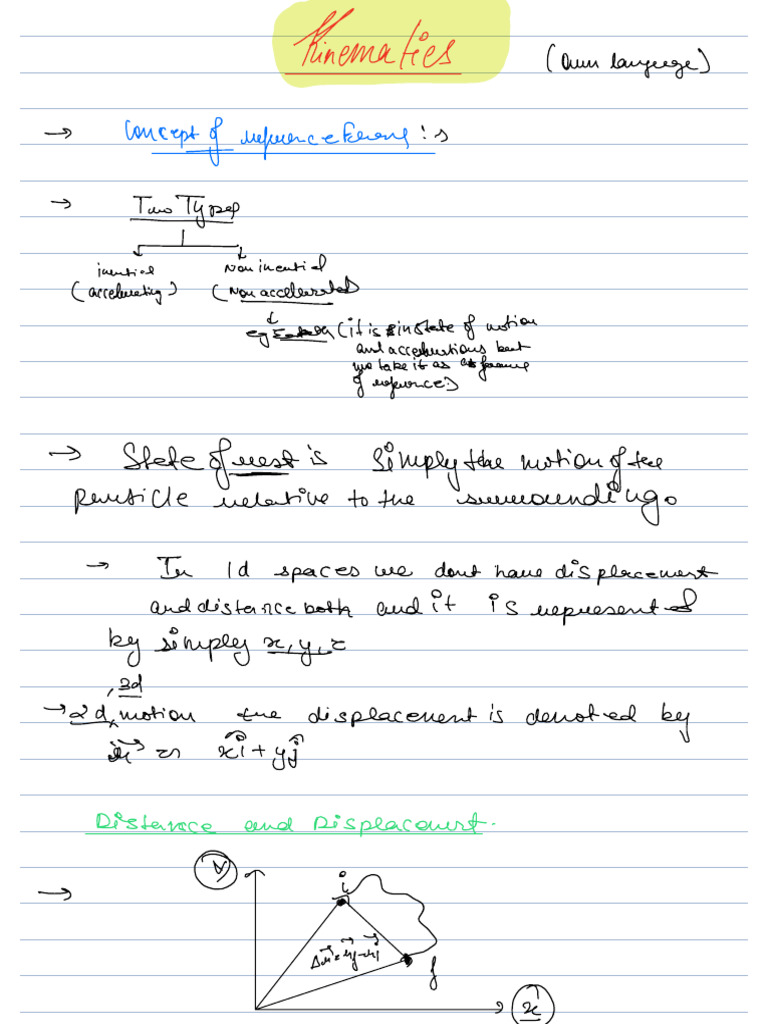 Kinematics
(Own language)
→ Concept of reference frame:s
→ Two Types
inertial Non inertial
(accelerating) (Non accelerated)
eg Earth (it is in state of motion
and accelerations but
we take it as a frame
of reference)
→ State of rest is simply the motion of the
particle relative to the surrounding.
→ In 1d spaces we dont have displacement
and distance both and it is represented
by simply x, y, z
, 3d
→ 2d, motion the displacement is denoted by
r⃗ = xî + yĵ
Distance and Displacement.
→ y
i
Δr⃗ = r⃗f - r⃗i
f
x